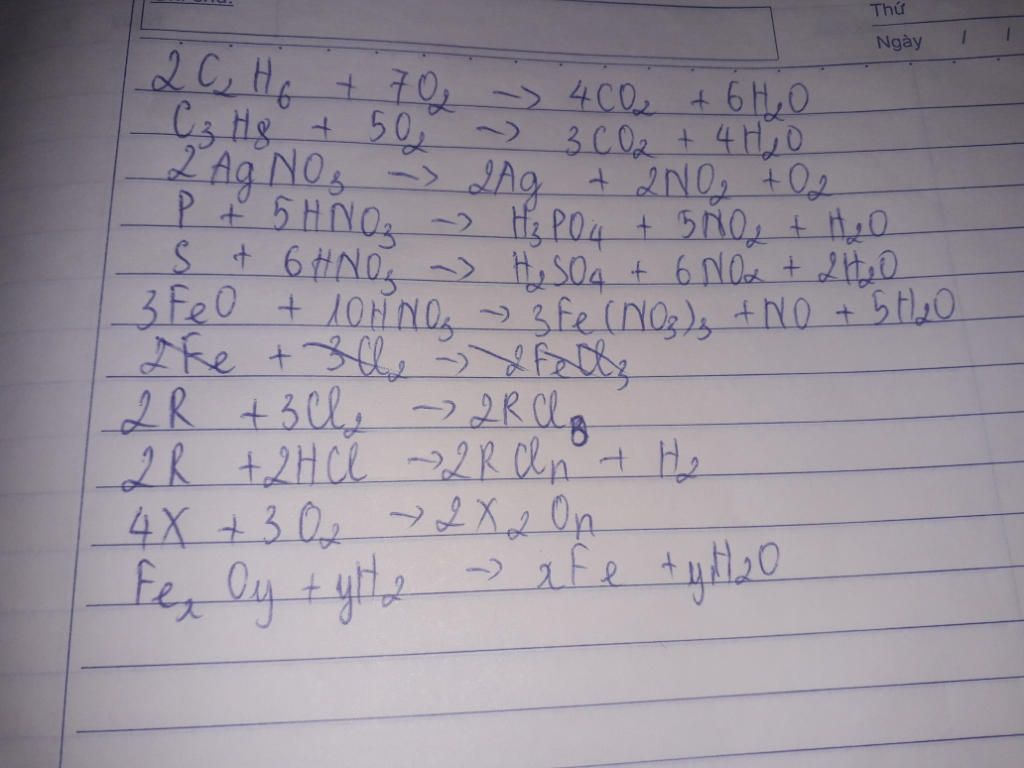 Thứ
Ngày / /
2C₂H₆ + 7O₂ → 4CO₂ + 6H₂O
C₃H8 + 5O₂ → 3CO₂ + 4H₂O
2AgNO₃ → 2Ag + 2NO₂ + O₂
P + 5HNO₃ → H₃PO₄ + 5NO₂ + H₂O
S + 6HNO₃ → H₂SO₄ + 6NO₂ + 2H₂O
3FeO + 10HNO₃ → 3Fe(NO₃)₃ + NO + 5H₂O
2Fe + 3Cl₂ → 2FeCl₃
2R + 3Cl₂ → 2RCl₃
2R + 2HCl → 2RClₙ + H₂
4X + 3O₂ → 2X₂Oₙ
FeₓOy + yH₂ → xFe + yH₂O